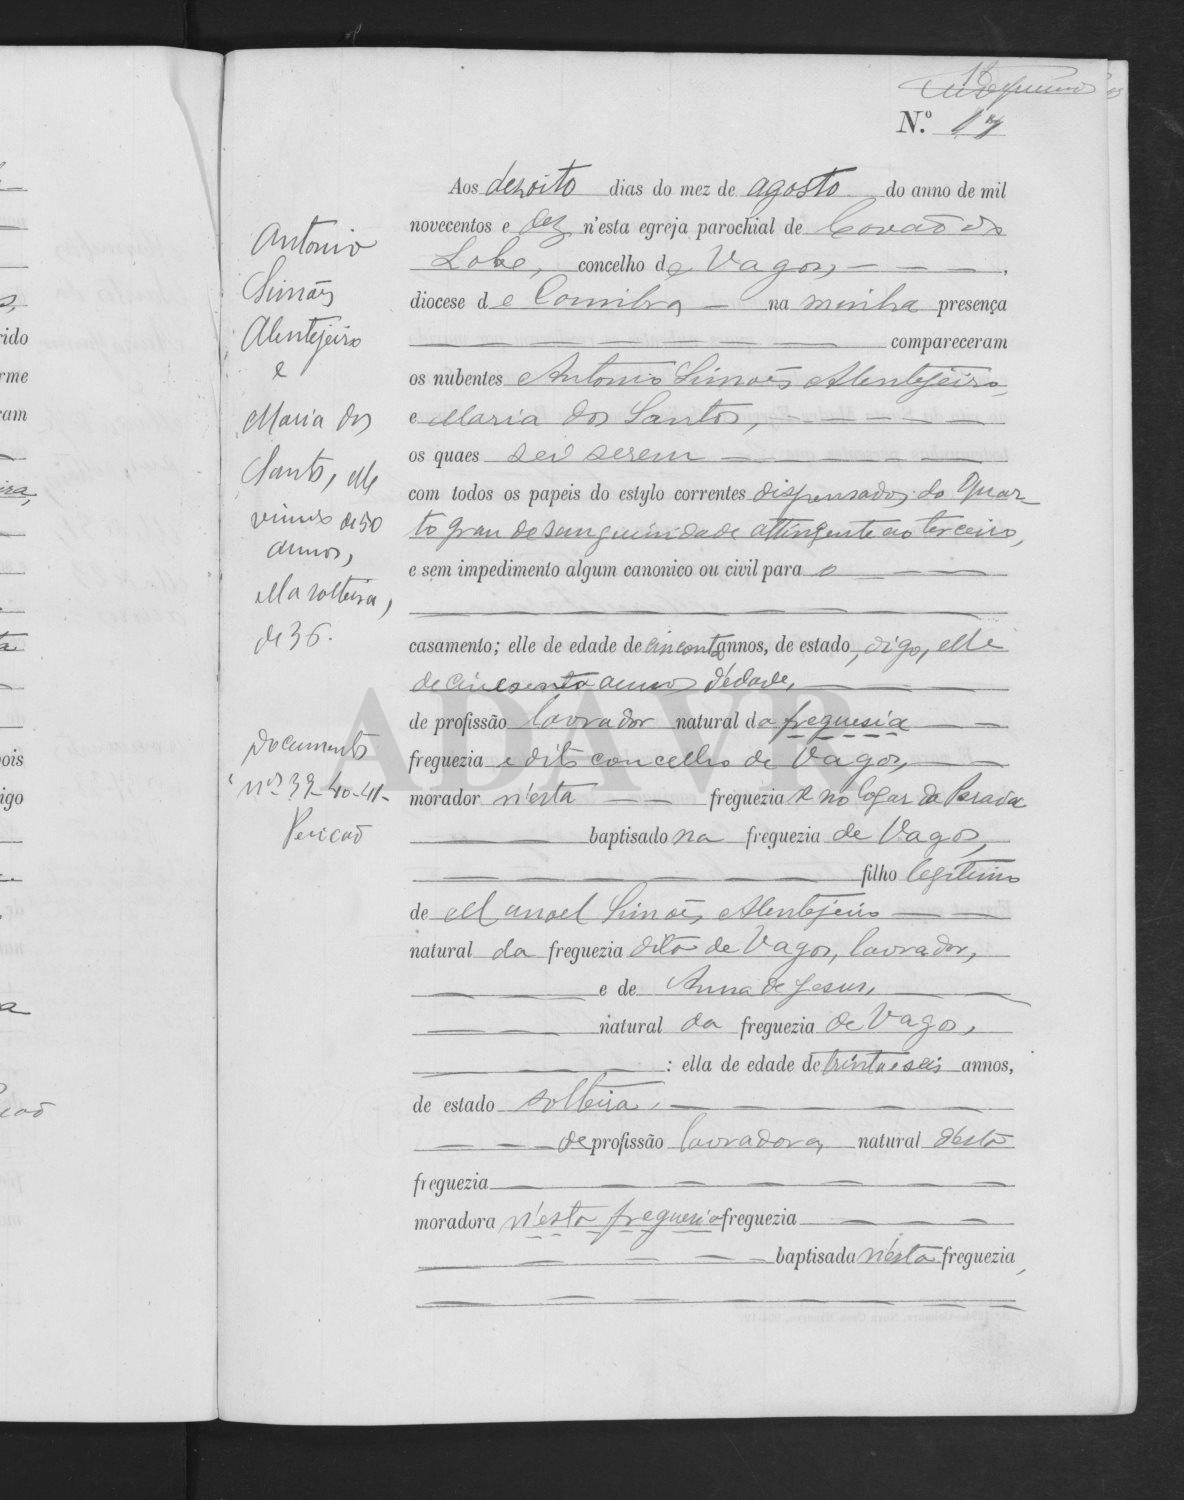 18
N.º 17
Aos dezoito dias do mez de agosto do anno de mil
novecentos e dez n'esta egreja parochial de Covão do
Lobo, concelho de Vagos,
diocese de Coimbra na minha presença
compareceram
os nubentes Antonio Simões Alentejeiro,
e Maria dos Santos,
os quaes sei serem
com todos os papeis do estylo correntes dispensados do Quar-
to grau de sanguinidade attingente ao terceiro,
e sem impedimento algum canonico ou civil para o
casamento; elle de edade de cincoenta annos, de estado, digo, elle
de cincoenta annos d'edade,
de profissão lavrador natural da freguesia
freguezia e dito concelho de Vagos,
morador n'esta freguezia e no logar da Parada
baptisado na freguezia de Vagos,
filho legitimo
de Manoel Simões Alentejeiro
natural da freguezia dita de Vagos, lavrador,
e de Anna de Jesus,
natural da freguezia de Vagos,
: ella de edade de trinta e seis annos,
de estado solteira,
de profissão lavradora, natural d'esta
freguezia
moradora n'esta freguesia freguezia
baptisada n'esta freguezia,
Antonio
Simões
Alentejeiro
e
Maria dos
Santos, elle
viuvo de 50
annos,
ella solteira,
de 36.
Documentos
nos 39-40-41-
ADAVR
rido
rme
ram
ois
igo